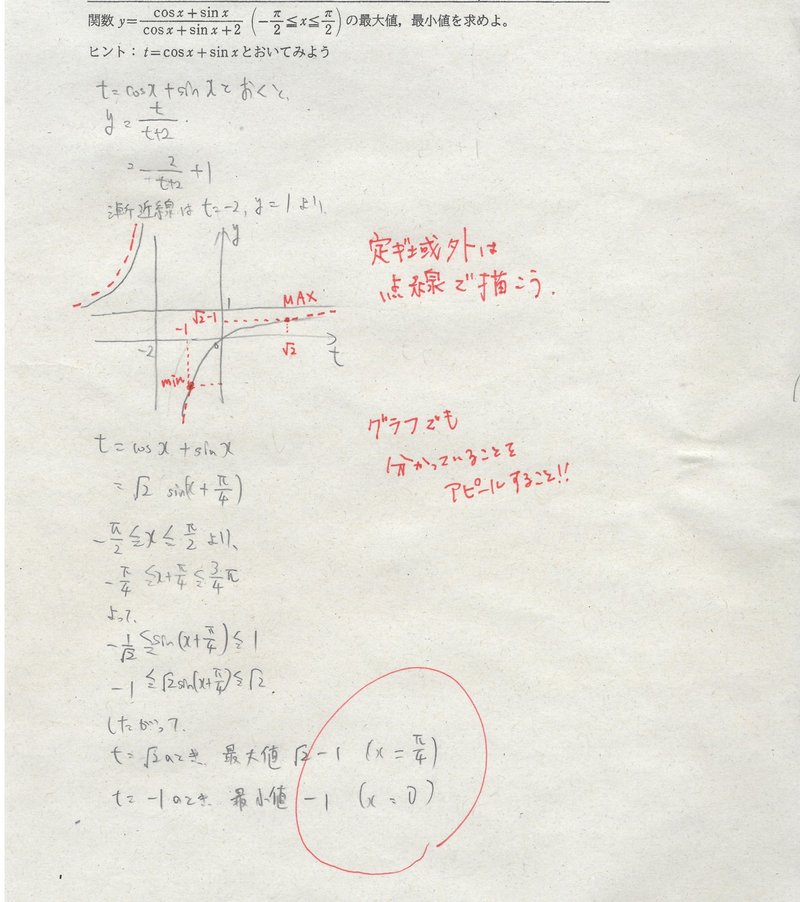 関数 y=(cos x+sin x)/(cos x+sin x+2) (-π/2≦x≦π/2) の最大値，最小値を求めよ。
ヒント： t=cos x+sin x とおいてみよう
t=cosx+sinxとおくと、
y=t/(t+2).
=-2/(t+2)+1
漸近線は t=-2, y=1 より、
定ギ域外は
点線で描こう.
y
1
MAX
√2-1
-1
-2
0
√2
t
min
グラフでも
分かっていることを
アピールすること!!
t=cosx+sinx
=√2 sin(x+π/4)
-π/2≦x≦π/2より、
-π/4≦x+π/4≦3/4π
よって、
-1/√2≦sin(x+π/4)≦1
-1≦√2sin(x+π/4)≦√2.
したがって、
t=√2のとき、最大値 √2-1 (x=π/4)
t=-1のとき、最小値 -1 (x=0)